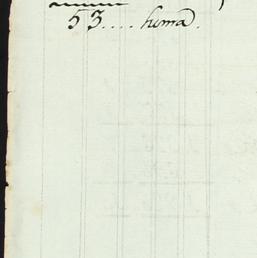 53.... huma.